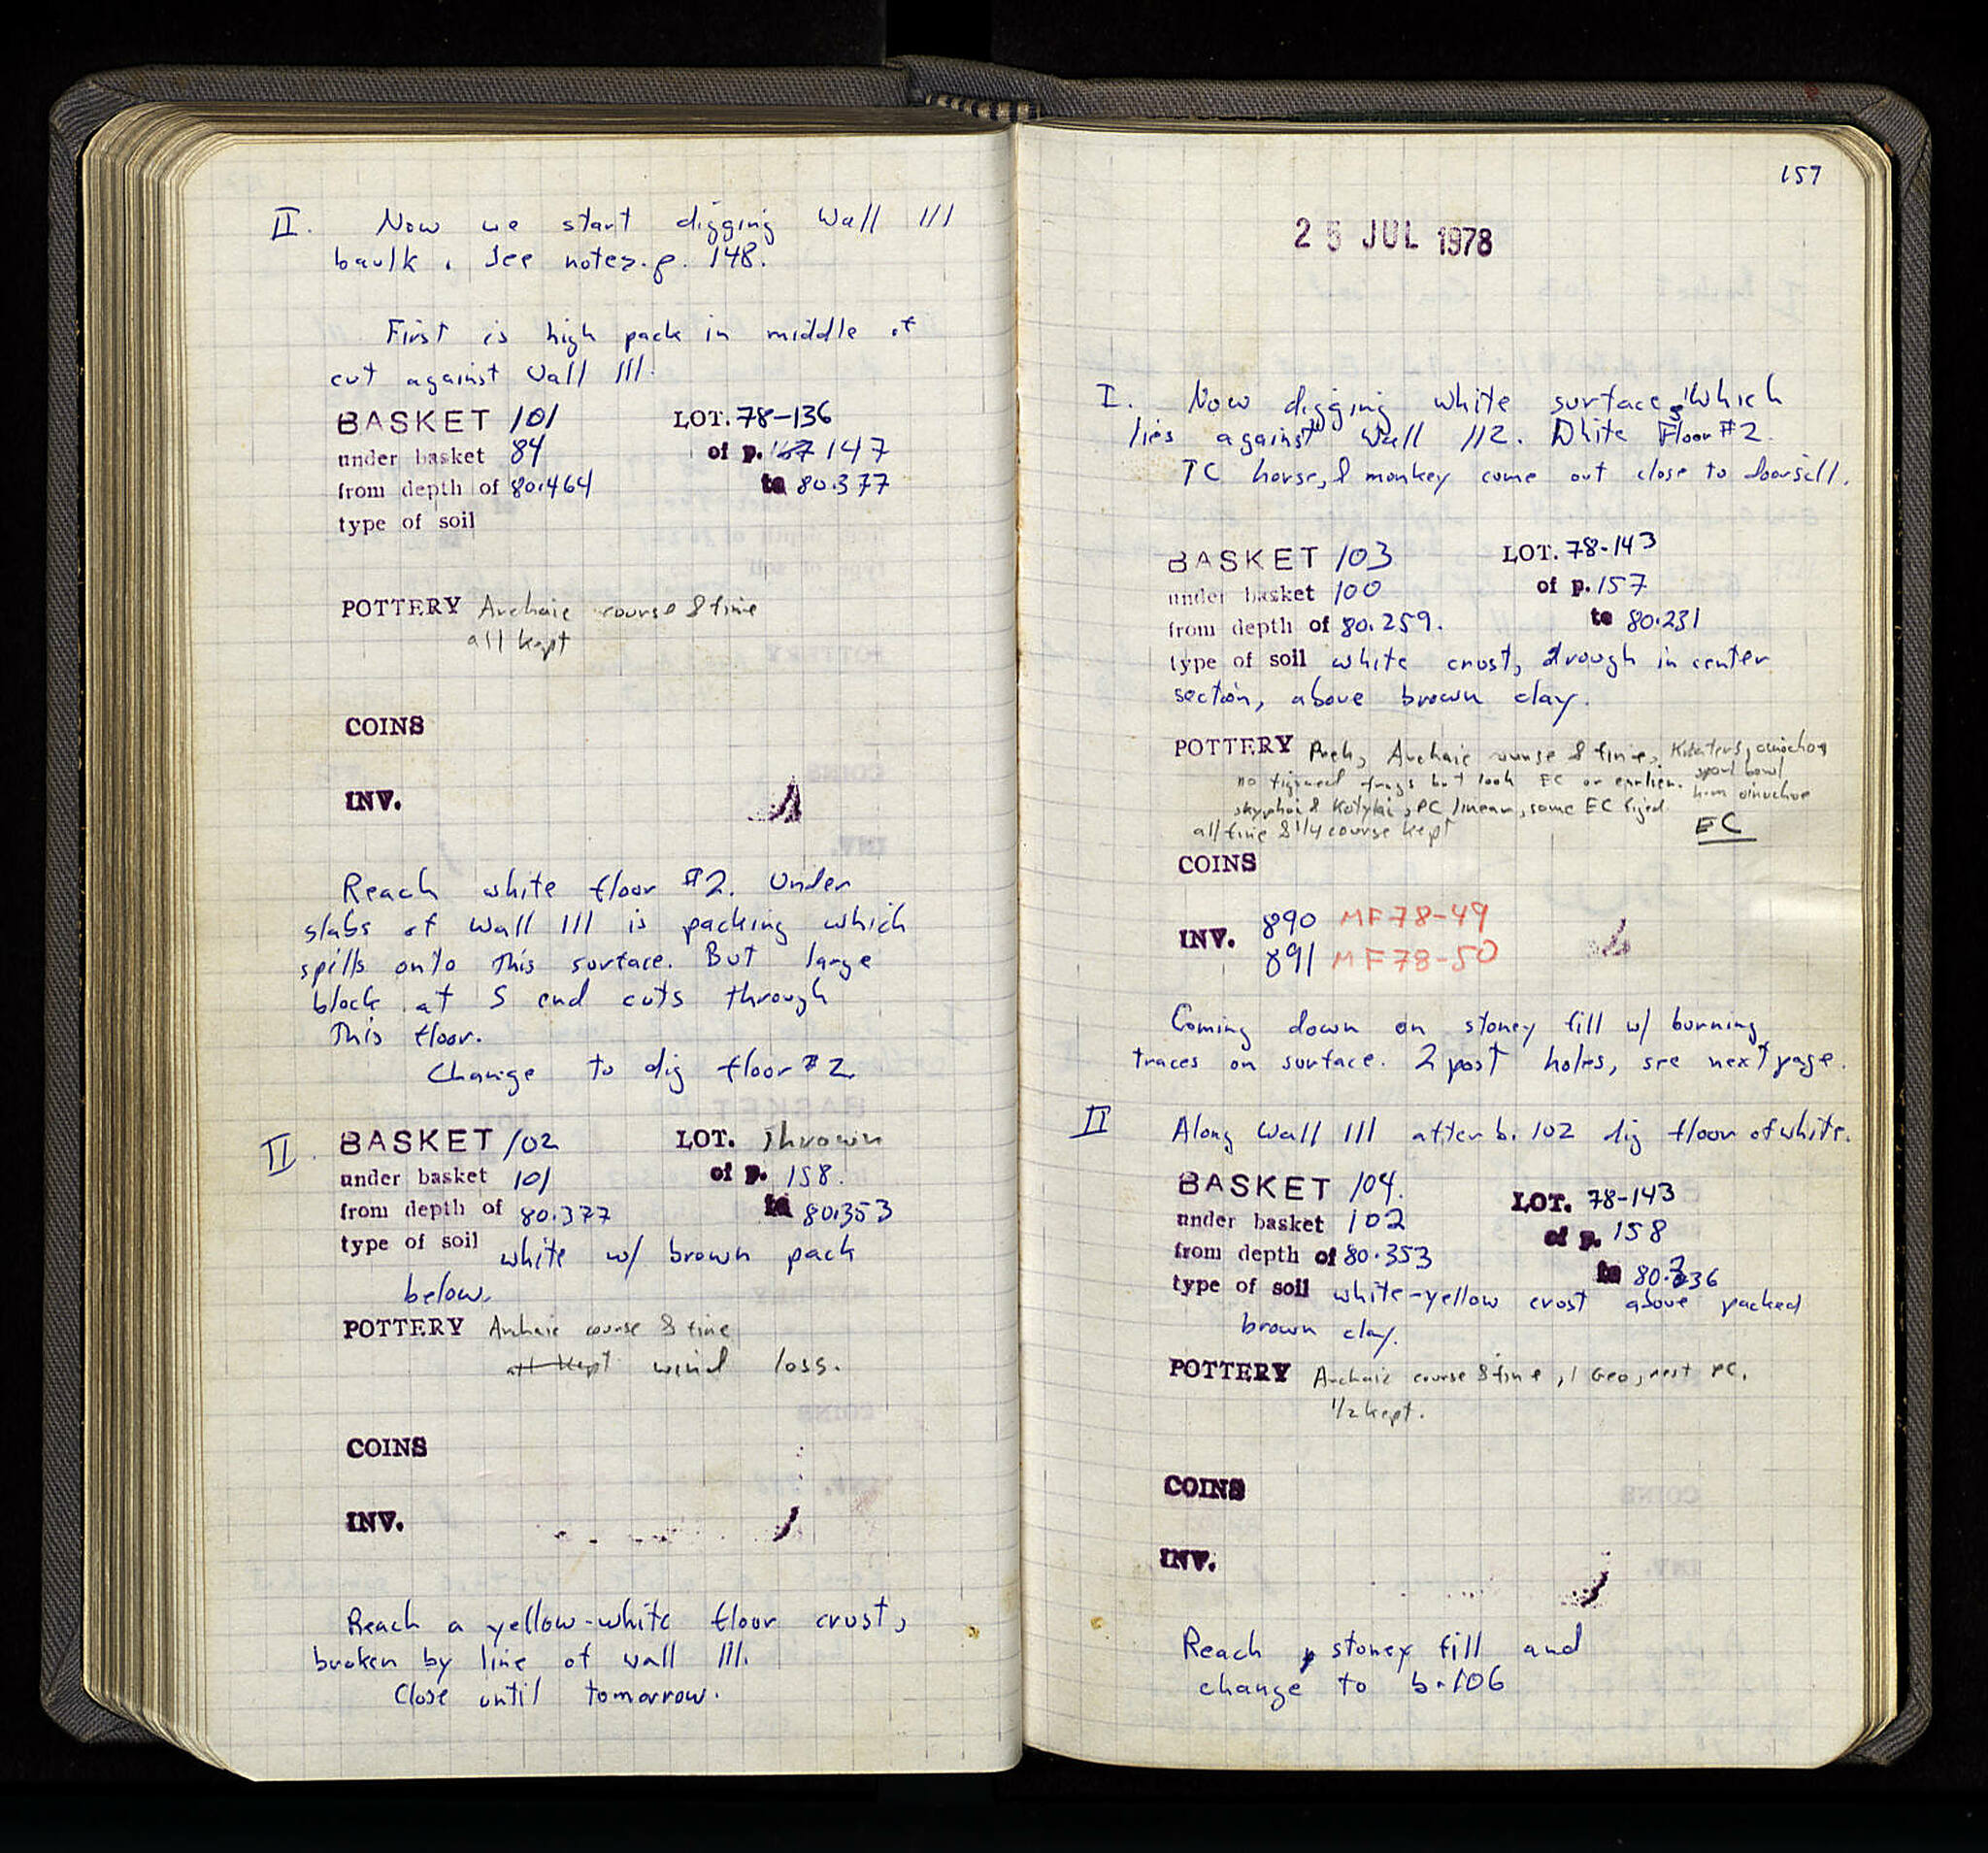 II. Now we start digging Wall 111
baulk. See notes. p. 148.
First is high pack in middle of
cut against Wall 111.
BASKET 101 LOT. 78-136
under basket 84 of p. 147
from depth of 80.464 to 80.377
type of soil
POTTERY Archaic course & fine
all kept
COINS
INV.
Reach white floor #2. Under
slabs of Wall 111 is packing which
spills onto this surface. But large
block at S end cuts through
This floor.
Change to dig floor #2.
II. BASKET 102 LOT. Thrown
under basket 101 of p. 158.
from depth of 80.377 to 80.353
type of soil white w/ brown pack
below.
POTTERY Archaic course & fine
all kept wind loss.
COINS
INV.
Reach a yellow-white floor crust,
broken by line of wall 111.
Close until tomorrow.
157
25 JUL 1978
I. Now digging white surface, which
lies against Wall 112. White Floor #2.
TC horse, & monkey come out close to doorsill.
BASKET 103 LOT. 78-143
under basket 100 of p. 157
from depth of 80.259. to 80.231
type of soil white crust, through in center
section, above brown clay.
POTTERY Archaic course & fine, Kraters, oinochoe
no figured frags but look EC or earlier. spool bowl,
skyphoi & Kotylai, PC linear, some EC figed. oinochoe
all fine & 1/4 course kept EC
COINS
INV. 890 MF78-49
891 MF78-50
Coming down on stoney fill w/ burning
traces on surface. 2 post holes, see next page.
II Along Wall 111 after b. 102 dig floor of white.
BASKET 104. LOT. 78-143
under basket 102 of p. 158
from depth of 80.353 to 80.336
type of soil white-yellow crust above packed
brown clay.
POTTERY Archaic course & fine, 1 Geo, rest PC.
1/2 kept.
COINS
INV.
Reach stoney fill and
change to b.106